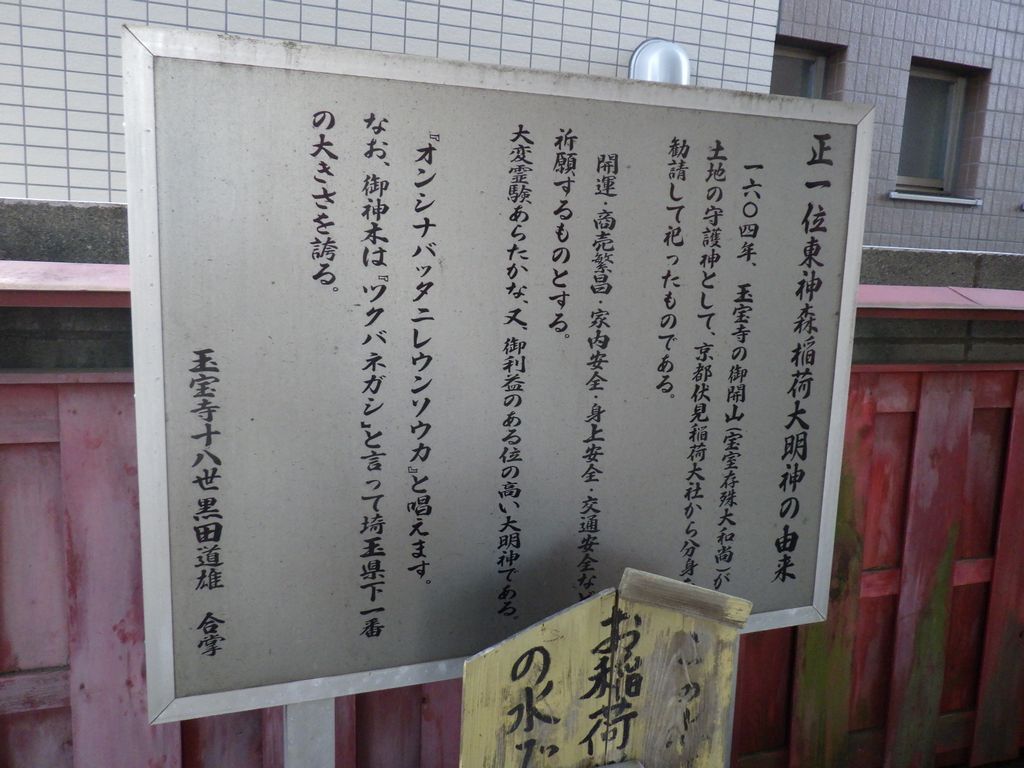 正一位東神森稲荷大明神の由来
一六〇四年、玉宝寺の御開山(宝室存殊大和尚)が
土地の守護神として、京都伏見稲荷大社から分身
勧請して祀ったものである。
開運・商売繁昌・家内安全・身上安全・交通安全な
祈願するものとする。
大変霊験あらたかな、又、御利益のある位の高い大明神である。
『オンシナバッタニレウンソウカ』と唱えます。
なお、御神木は『ツクバネガシ』と言って埼玉県下一番
の大きさを誇る。
玉宝寺十八世黒田道雄 合掌
お稲荷
の水